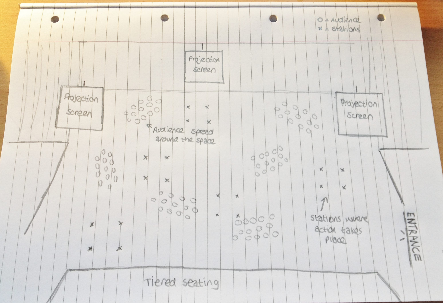 o = audience
x = stations
Projection
Screen
Projection
Screen
Projection
Screen
Audience spread
around the space
Stations, where
action takes
place
ENTRANCE
Tiered seating